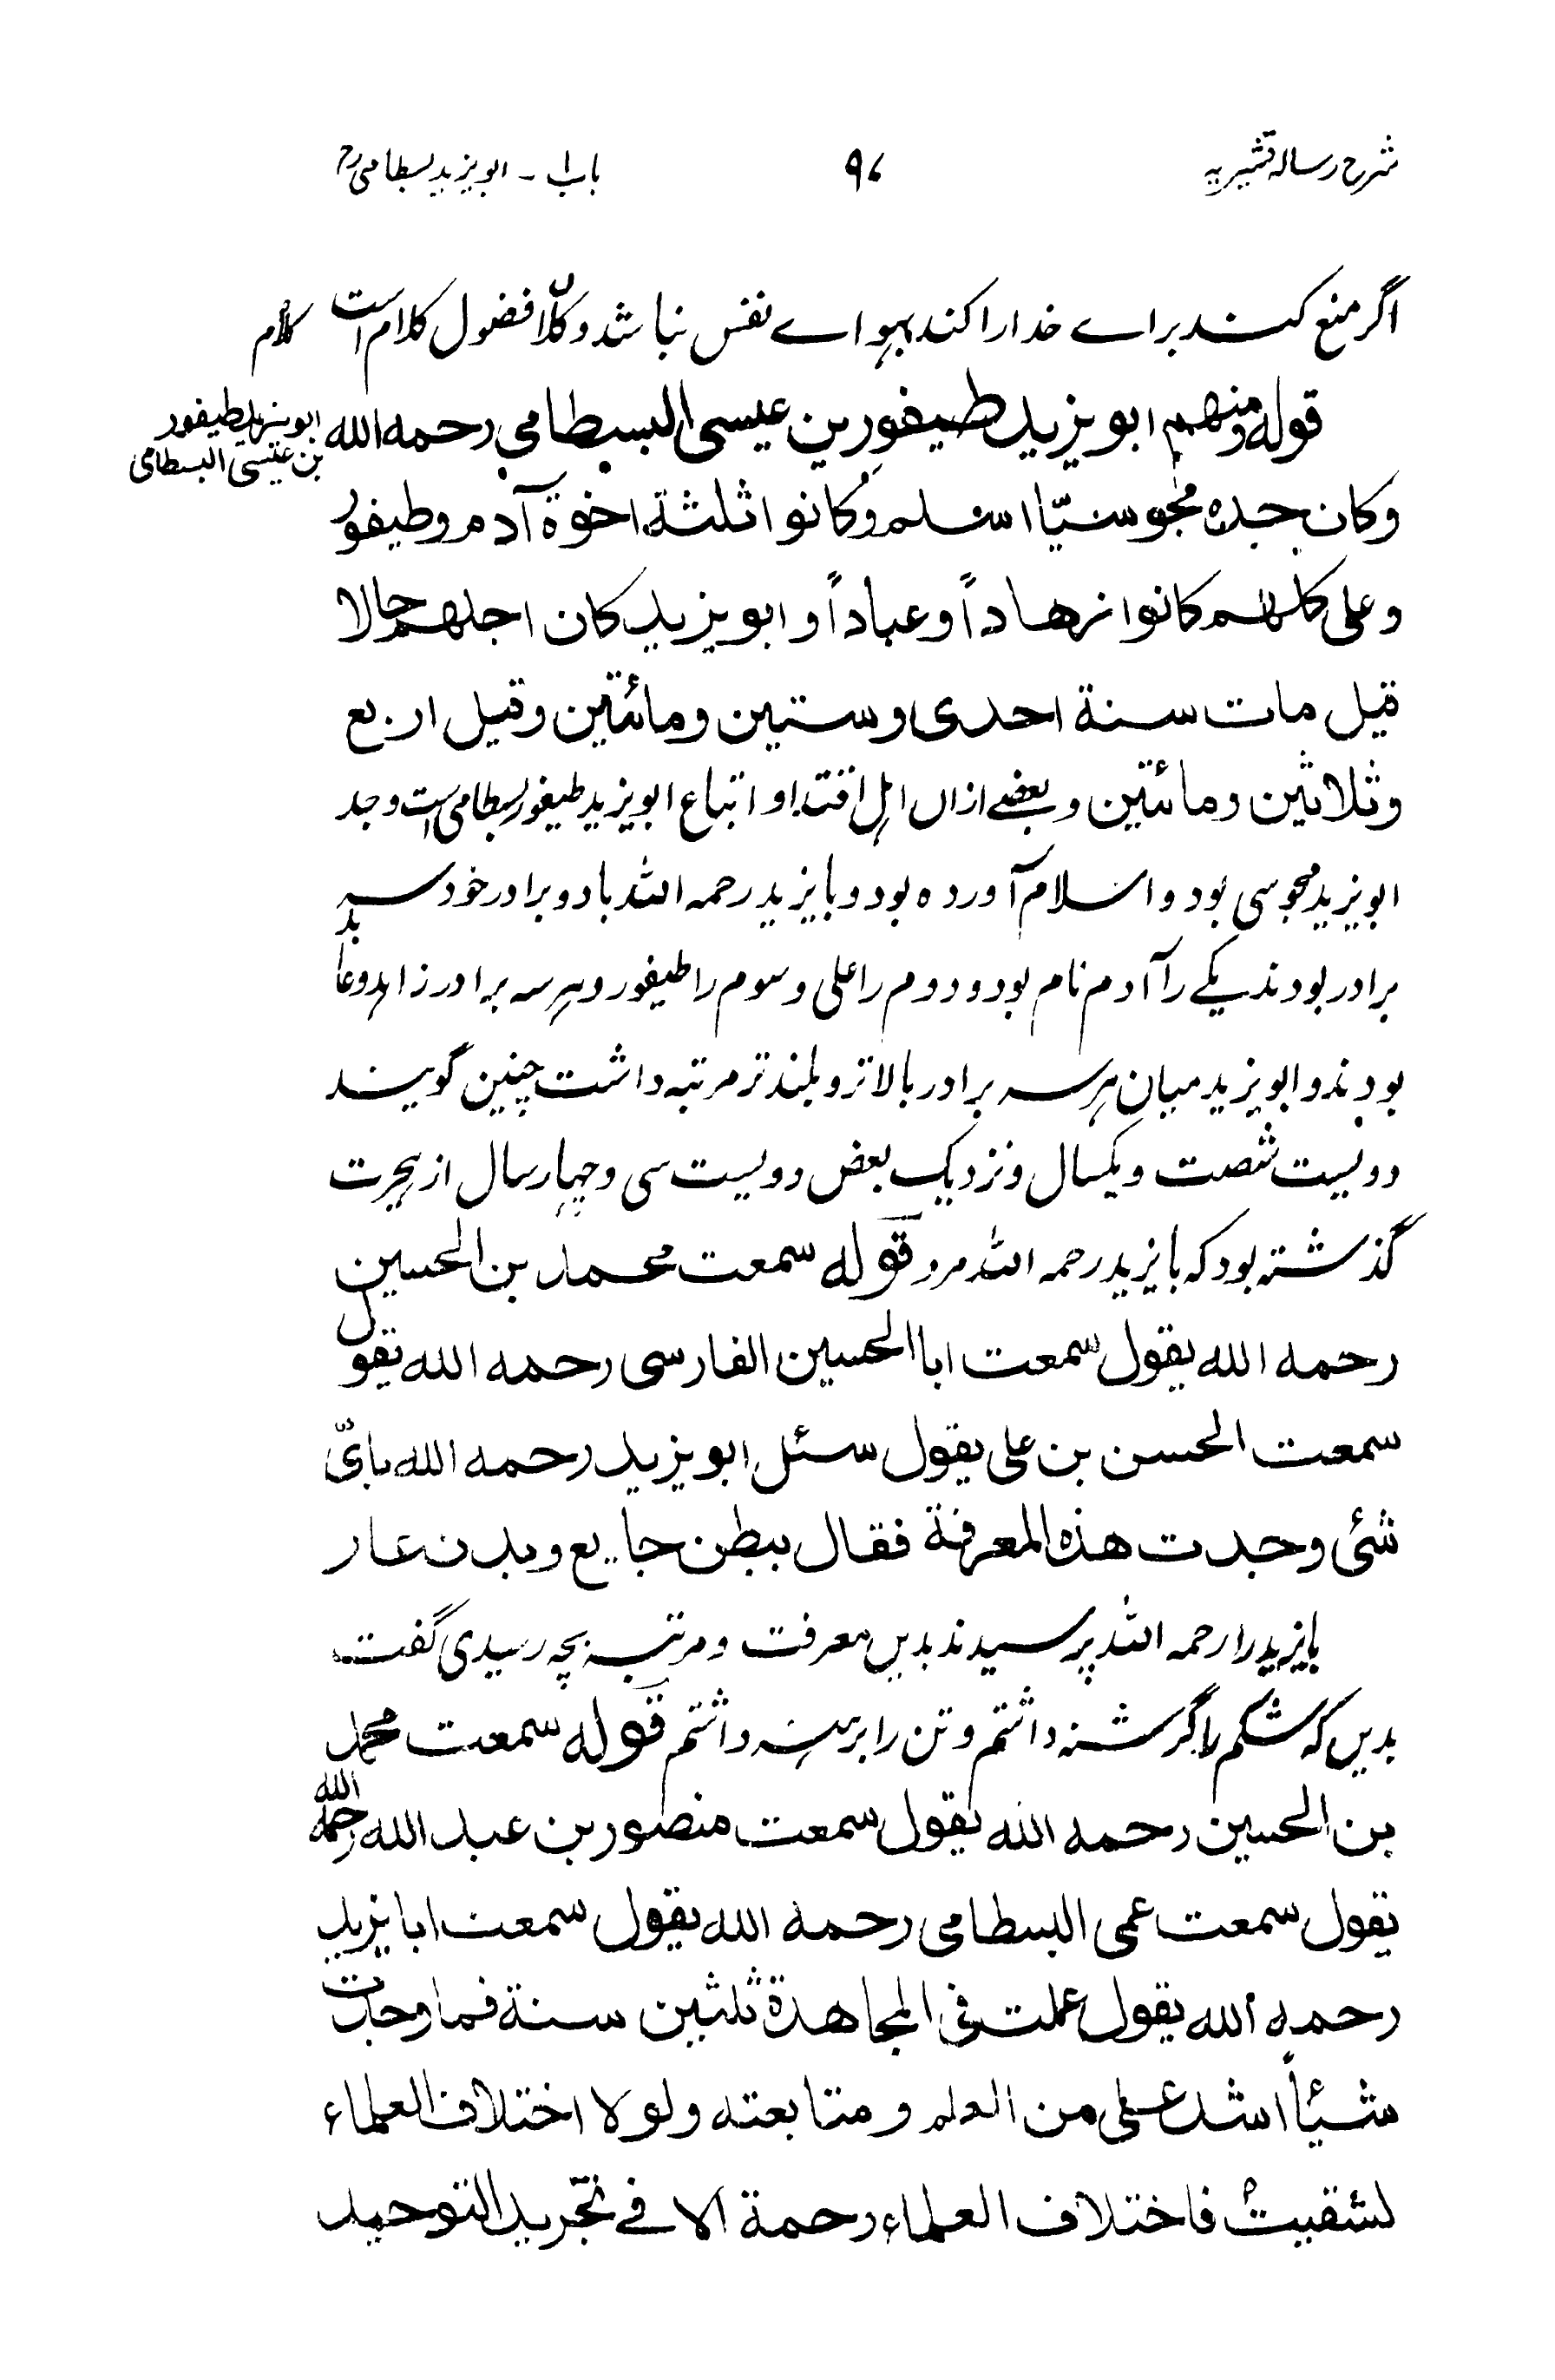 شرح رسالہ قشیریہ
۹۷
باب ۱ - ابو یزید بسطامی رح
اگر منع کند برائے خدا را کند بہوائے نفس نباشد و کلّا فضول کلام است کلام
قوله ومنهم ابو يزيد طيفور بن عيسى البسطامي رحمه الله
ابو يزيد طيفور
بن عيسى البسطامى
وكان جده مجوسيّا اسلم وكانوا ثلثة اخوة آدم وطيفور
وعلى كلهم كانوا زهاداً وعباداً وابو يزيد كان اجلهم حالا
قيل مات سنة احدى وستين ومائتين وقيل اربع
وثلاثين ومائتين و بعضے ازاں اہل اقتدا و اتباع ابو یزید طیفور بسطامی است و جد
ابو یزید مجوسی بود و اسلام آورده بود و بایزید رحمہ اللہ با دو برادر خود سہ
برادر بودند یکے را آدم نام بود و دوم را علی و سوم را طیفور و ہر سہ برادر زاہد و عابد
بودند و ابو یزید میان ہر سہ برادر بالاتر و بلند تر مرتبہ داشت چنین گویند
دویست شصت و یکسال و نزدیک بعض دویست سی و چہار سال از ہجرت
گذشتہ بود کہ بایزید رحمہ اللہ مرد قوله سمعت محمد بن الحسين
رحمه الله يقول سمعت ابا الحسين الفارسى رحمه الله يقول
سمعت الحسن بن على يقول سئل ابو يزيد رحمه الله باىّ
شئ وجدت هذه المعرفة فقال ببطن جايع وبدن عار
بایزید را رحمہ اللہ پرسیدند بدیں معرفت و مرتبہ بچہ رسیدی گفت
بدیں کہ شکم را گرسنہ داشتم و تن را برہنہ داشتم قوله سمعت محمد
بن الحسين رحمه الله يقول سمعت منصور بن عبد الله رحمه الله
يقول سمعت عمى البسطامى رحمه الله يقول سمعت ابا يزيد
رحمه الله يقول عملت فى المجاهدة ثلثين سنة فما وجدت
شيئاً اشد على من العلم ومتابعته ولولا اختلاف العلماء
لشقيتُ فاختلاف العلماء رحمة الا فى تجريد التوحيد